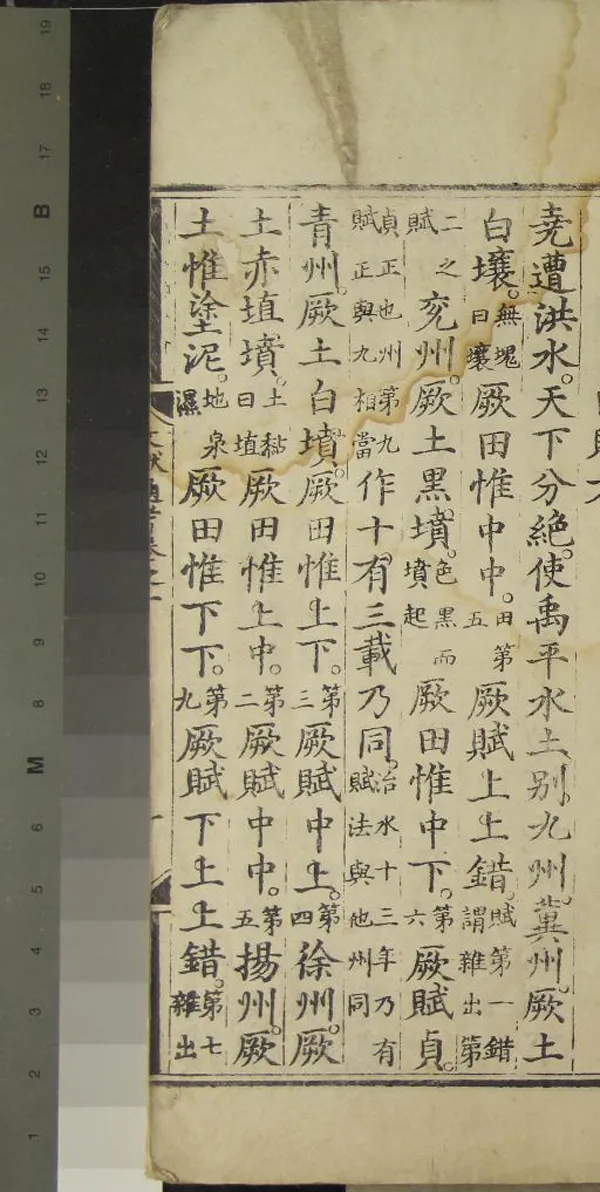 堯遭洪水。天下分絶。使禹平水土。别九州。冀州。厥土
白壤。無塊曰壤厥田惟中中。田第五厥賦上上錯。賦第一錯謂雜出第
二之賦兖州。厥土黑墳。色黑而墳起厥田惟中下。第六厥賦貞。
貞正也州第九賦正與九相當作十有三載乃同。治水十三年乃有賦法與他州同
青州。厥土白墳。厥田惟上下。第三厥賦中上。第四徐州。厥
土赤埴墳。土黏曰埴厥田惟上中。第二厥賦中中。第五揚州。厥
土惟塗泥。地泉濕厥田惟下下。第九厥賦下上上錯。第七雜出
19
18
17
B
15
14
13
12
11
10
9
8
M
6
5
4
3
2
1